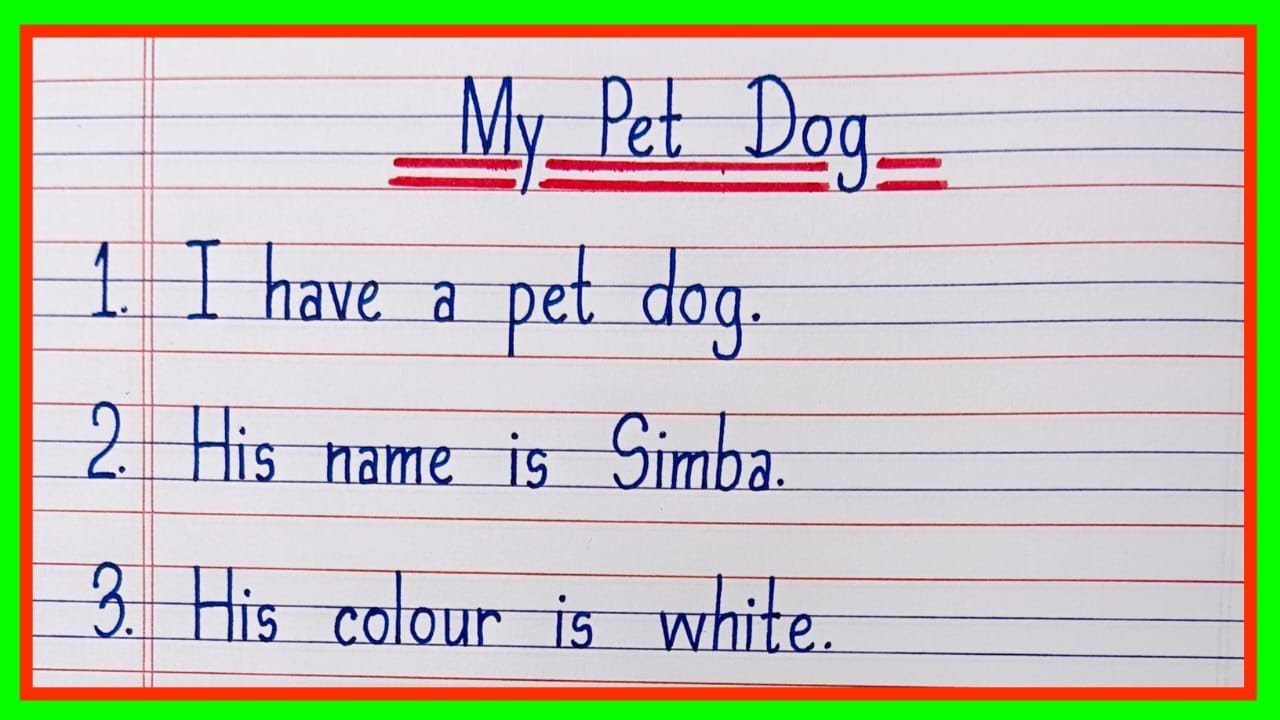 My Pet Dog
1. I have a pet dog.
2. His name is Simba.
3. His colour is white.